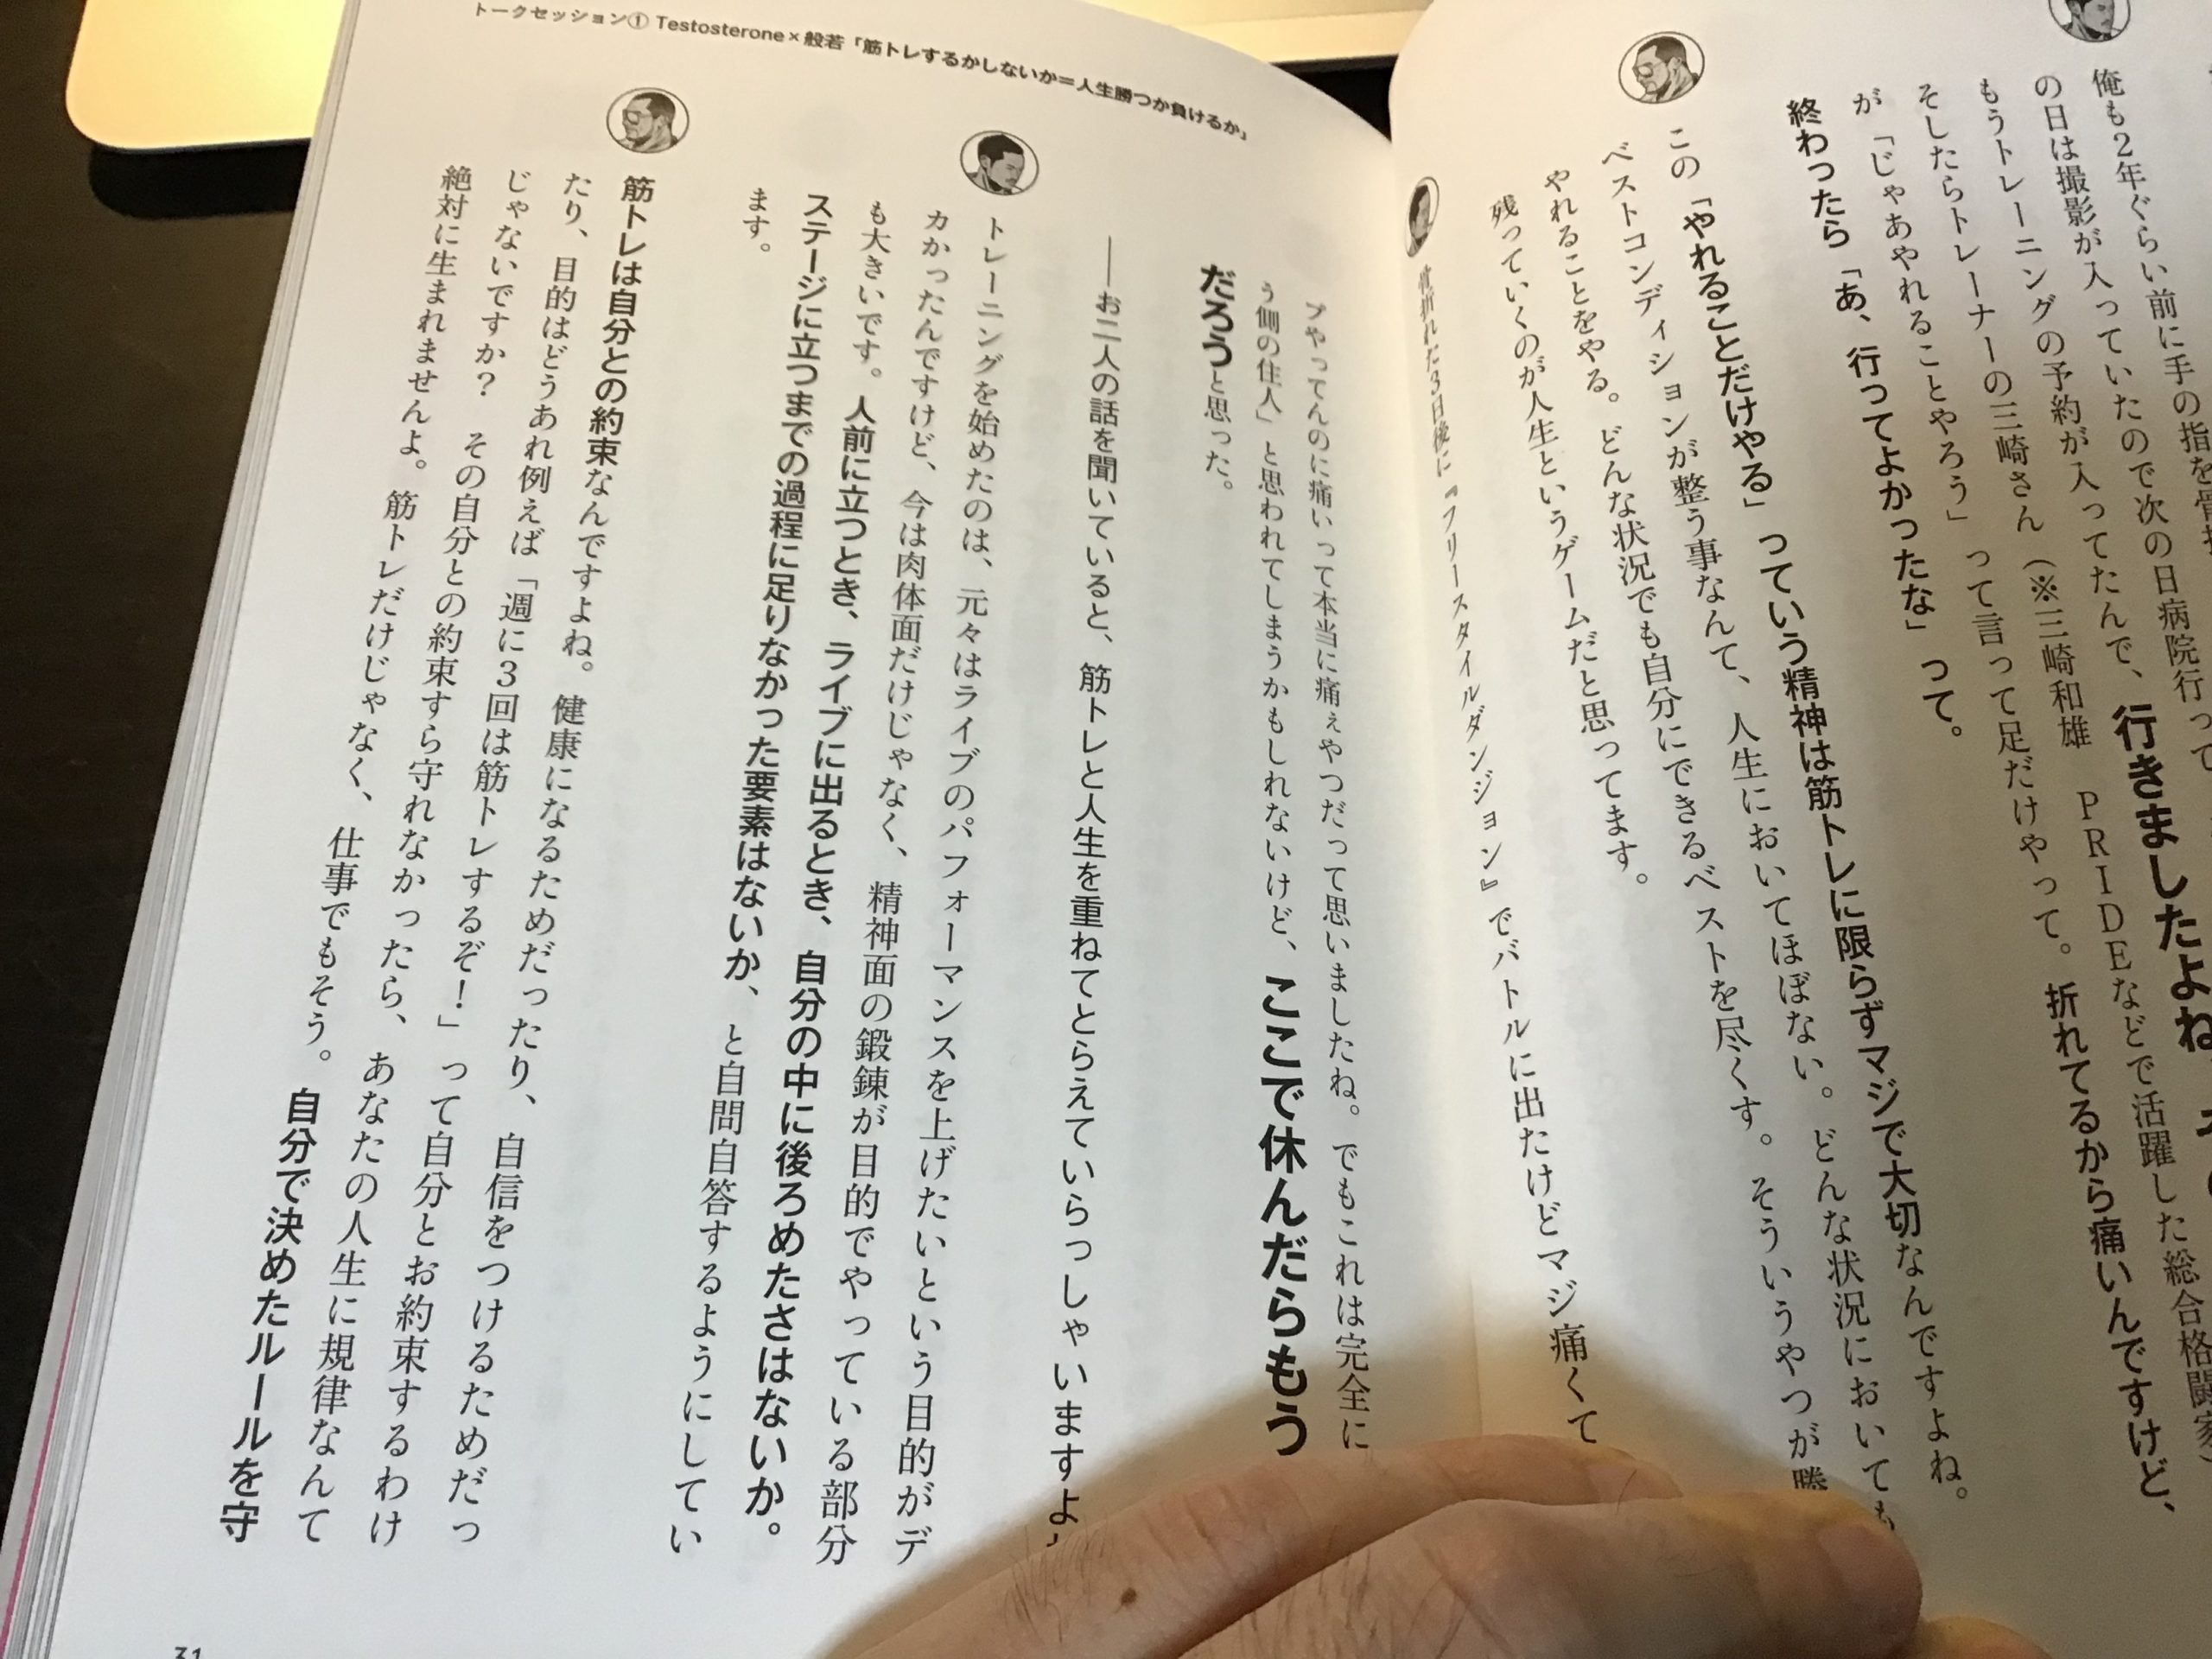 トークセッション① Testosterone×般若「筋トレするかしないか＝人生勝つか負けるか」
俺も2年ぐらい前に手の指を骨
の日は撮影が入っていたので次の日病院行って
もうトレーニングの予約が入ってたんで、行きましたよね
そしたらトレーナーの三崎さん（※三崎和雄　PRIDEなどで活躍した総合格闘家）
が「じゃあやれることやろう」って言って足だけやって。折れてるから痛いんですけど、
終わったら「あ、行ってよかったな」って。
この「やれることだけやる」っていう精神は筋トレに限らずマジで大切なんですよね。
ベストコンディションが整う事なんて、人生においてほぼない。どんな状況においても
やれることをやる。どんな状況でも自分にできるベストを尽くす。そういうやつが勝
残っていくのが人生というゲームだと思ってます。
骨折れた3日後に『フリースタイルダンジョン』でバトルに出たけどマジ痛くて
やってんのに痛いって本当に痛ぇやつだって思いましたね。でもこれは完全に
う側の住人」と思われてしまうかもしれないけど、ここで休んだらもう
だろうと思った。
――お二人の話を聞いていると、筋トレと人生を重ねてとらえていらっしゃいますよ
トレーニングを始めたのは、元々はライブのパフォーマンスを上げたいという目的がデ
カかったんですけど、今は肉体面だけじゃなく、精神面の鍛錬が目的でやっている部分
も大きいです。人前に立つとき、ライブに出るとき、自分の中に後ろめたさはないか。
ステージに立つまでの過程に足りなかった要素はないか、と自問自答するようにしてい
ます。
筋トレは自分との約束なんですよね。健康になるためだったり、自信をつけるためだっ
たり、目的はどうあれ例えば「週に3回は筋トレするぞ！」って自分とお約束するわけ
じゃないですか？　その自分との約束すら守れなかったら、あなたの人生に規律なんて
絶対に生まれませんよ。筋トレだけじゃなく、仕事でもそう。自分で決めたルールを守
31